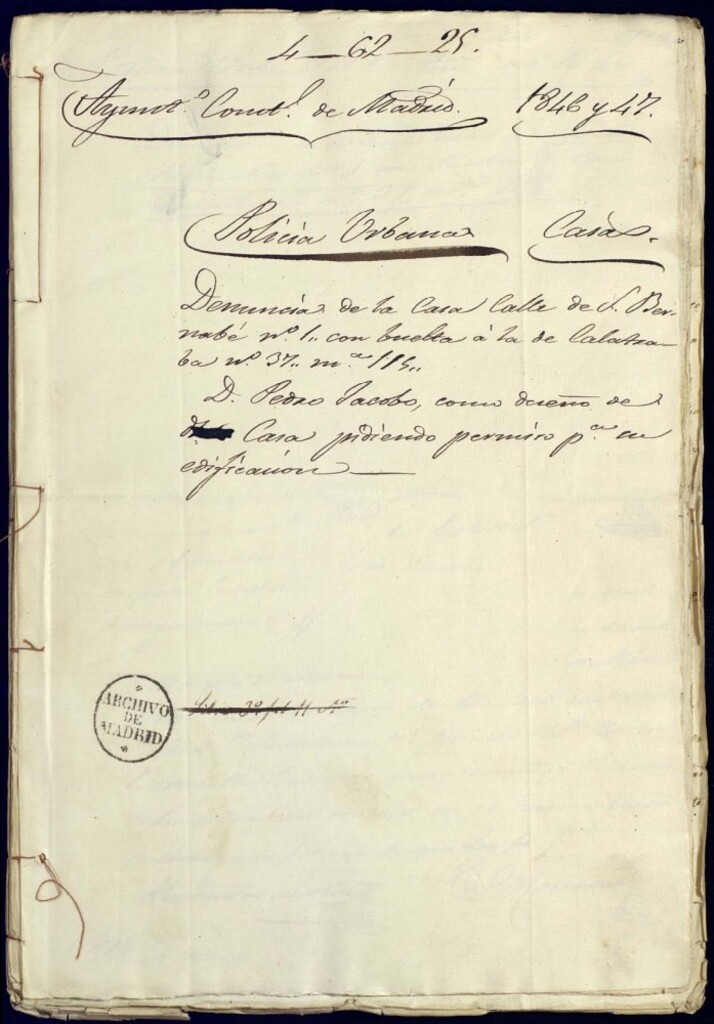 4-62-25.
Aymt.º Const.l de Madrid. 1846 y 47.
Policia Urbana Casas.
Denuncia de la Casa Calle de S. Ber-
nabé nº 1.. con buelta á la de Calatra-
ba nº 37.. m.na 115..
D. Pedro Jacobo, como dueño de
Casa pidiendo permiso p.a su
edificacion
ARCHIVO
DE
MADRID